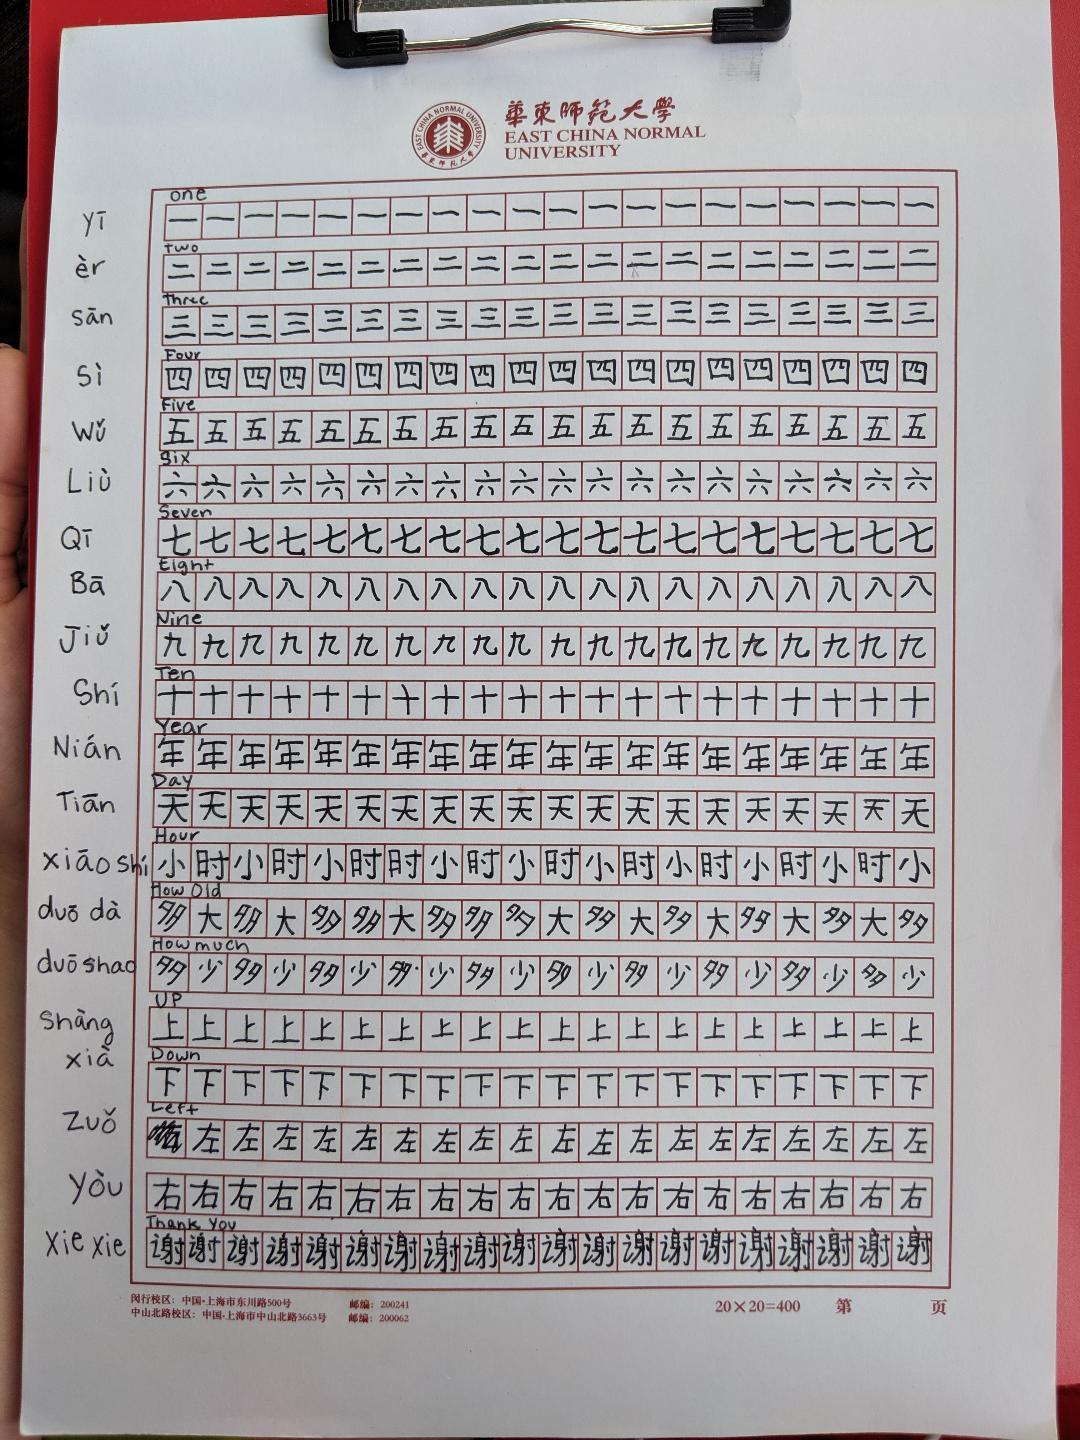 華東師范大學
EAST CHINA NORMAL
UNIVERSITY
EAST CHINA NORMAL UNIVERSITY
華東師范大學
one
yī 一 一 一 一 一 一 一 一 一 一 一 一 一 一 一 一 一 一 一 一
Two
èr 二 二 二 二 二 二 二 二 二 二 二 二 二 二 二 二 二 二 二 二
Three
sān 三 三 三 三 三 三 三 三 三 三 三 三 三 三 三 三 三 三 三 三
Four
Sì 四 四 四 四 四 四 四 四 四 四 四 四 四 四 四 四 四 四 四 四
Five
Wǔ 五 五 五 五 五 五 五 五 五 五 五 五 五 五 五 五 五 五 五 五
Six
Liù 六 六 六 六 六 六 六 六 六 六 六 六 六 六 六 六 六 六 六 六
Seven
Qī 七 七 七 七 七 七 七 七 七 七 七 七 七 七 七 七 七 七 七 七
Eight
Bā 八 八 八 八 八 八 八 八 八 八 八 八 八 八 八 八 八 八 八 八
Nine
Jiǔ 九 九 九 九 九 九 九 九 九 九 九 九 九 九 九 九 九 九 九 九
Ten
Shí 十 十 十 十 十 十 十 十 十 十 十 十 十 十 十 十 十 十 十 十
Year
Nián 年 年 年 年 年 年 年 年 年 年 年 年 年 年 年 年 年 年 年 年
Day
Tiān 天 天 天 天 天 天 天 天 天 天 天 天 天 天 天 天 天 天 天 天
Hour
xiāo shí 小 时 小 时 小 时 时 小 时 小 时 小 时 小 时 小 时 小 时 小
How Old
duō dà 多 大 多 大 多 多 大 多 多 多 大 多 大 多 大 多 大 多 大 多
How much
duō shao 多 少 多 少 多 少 多 少 多 少 多 少 多 少 多 少 多 少 多 少
UP
Shàng 上 上 上 上 上 上 上 上 上 上 上 上 上 上 上 上 上 上 上 上
Down
xià 下 下 下 下 下 下 下 下 下 下 下 下 下 下 下 下 下 下 下 下
Left
Zuǒ 左 左 左 左 左 左 左 左 左 左 左 左 左 左 左 左 左 左 左
Yòu 右 右 右 右 右 右 右 右 右 右 右 右 右 右 右 右 右 右 右 右
Thank You
xie xie 谢 谢 谢 谢 谢 谢 谢 谢 谢 谢 谢 谢 谢 谢 谢 谢 谢 谢 谢 谢
闵行校区：中国·上海市东川路500号 邮编：200241
中山北路校区：中国·上海市中山北路3663号 邮编：200062
20×20=400 第 页